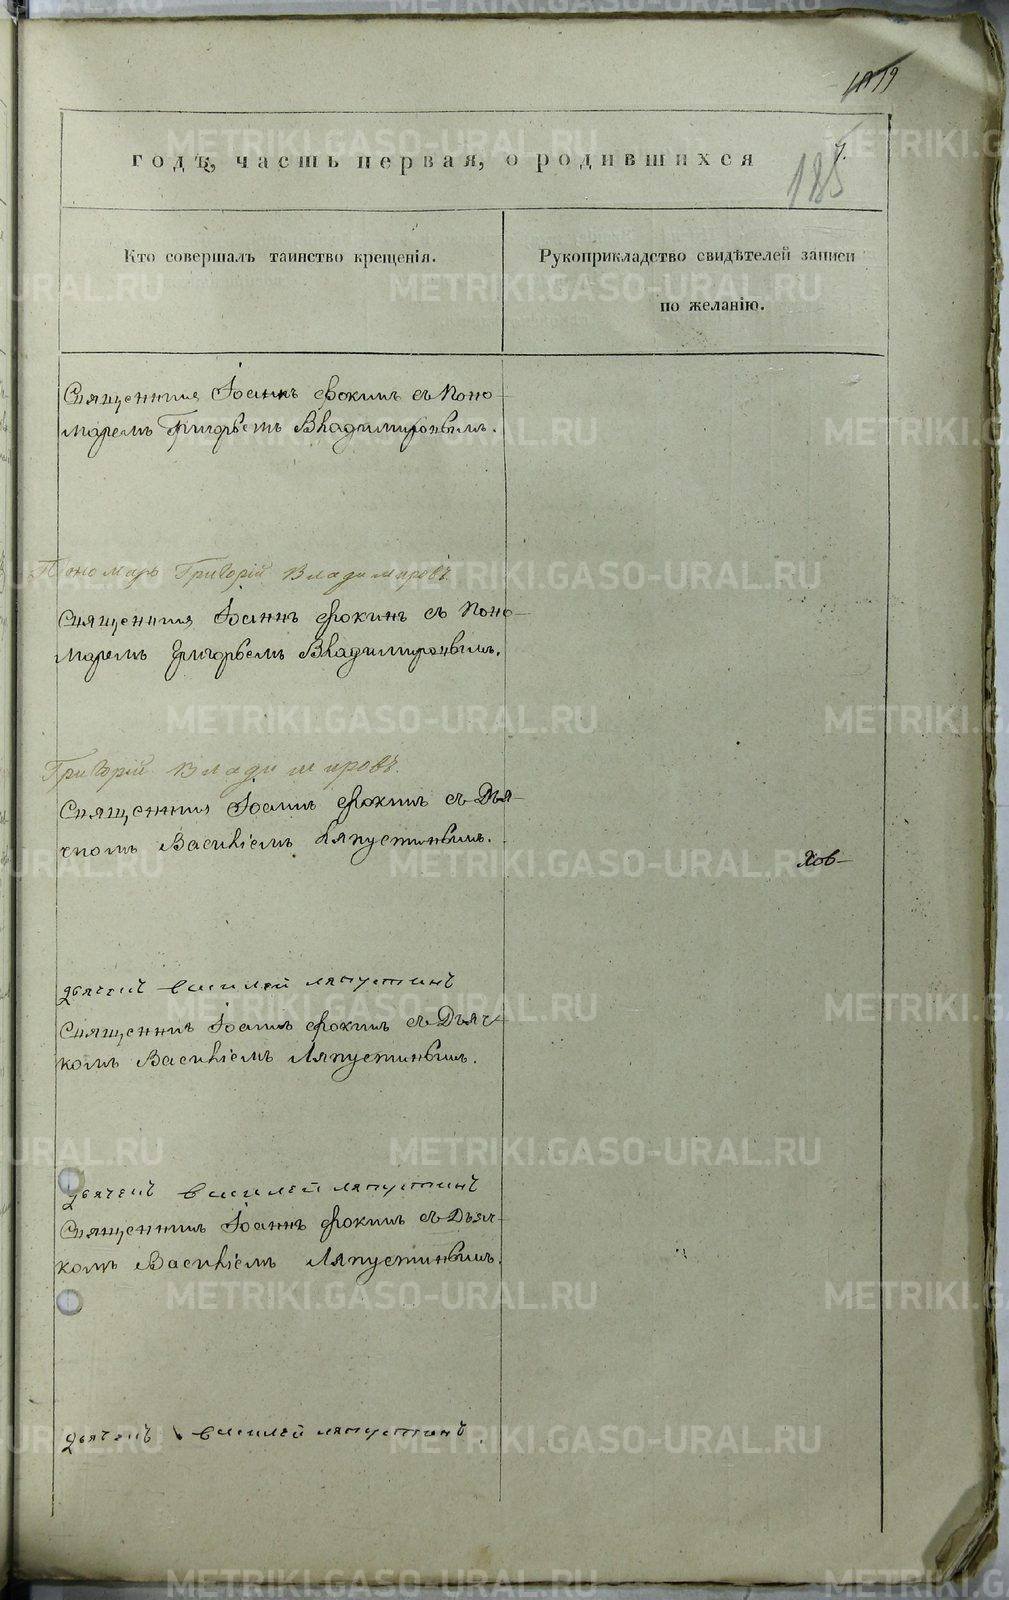 годъ, часть первая, о родившихся
7.
185
Кто совершалъ таинство крещенія.
Рукоприкладство свидѣтелей записи
по желанію.
Священникъ Іоаннъ Фокинъ съ Поно-
маремъ Григорьемъ Владимировымъ.
Пономарь Григорій Владимировъ
Священникъ Іоаннъ Фокинъ съ Поно-
маремъ Григорьемъ Владимировымъ.
Григорій Владимировъ.
Священникъ Іоаннъ Фокинъ съ Дья-
чкомъ Василіемъ Ляпустинымъ.
Хов-
дьячекъ василей ляпустинъ
Священникъ Іоаннъ Фокинъ съ Дьяч-
комъ Василіемъ Ляпустинымъ.
дьячекъ василей ляпустинъ
Священникъ Іоаннъ Фокинъ съ Дьяч-
комъ Василіемъ Ляпустинымъ.
дьячекъ василей ляпустинъ.
METRIKI.GASO-URAL.RU